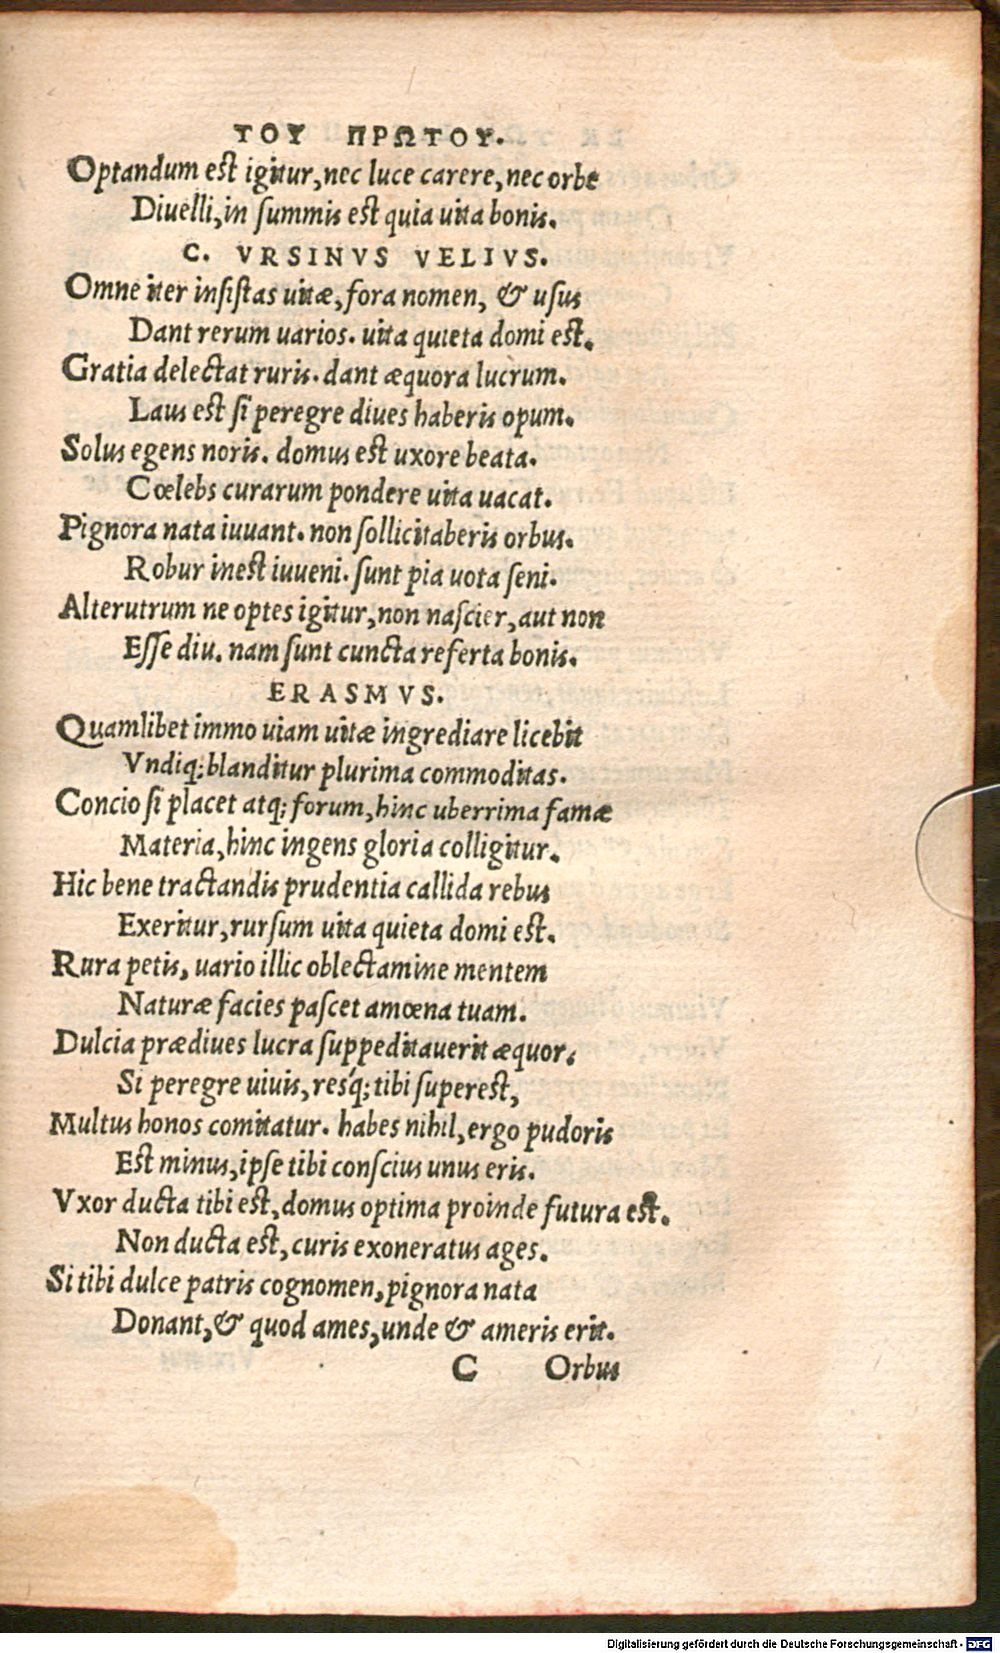 ΤΟΥ ΠΡΩΤΟΥ.
Optandum est igitur, nec luce carere, nec orbe
Diuelli, in summis est quia uita bonis.
C. VRSINVS VELIVS.
Omne iter insistas uitæ, fora nomen, & usus
Dant rerum uarios. uita quieta domi est.
Gratia delectat ruris. dant æquora lucrum.
Laus est si peregre diues haberis opum.
Solus egens noris. domus est uxore beata.
Cœlebs curarum pondere uita uacat.
Pignora nata iuuant. non sollicitaberis orbus.
Robur inest iuueni. sunt pia uota seni.
Alterutrum ne optes igitur, non nascier, aut non
Esse diu. nam sunt cuncta referta bonis.
ERASMVS.
Quamlibet immo uiam uitæ ingrediare licebit
Vndiq; blanditur plurima commoditas.
Concio si placet atq; forum, hinc uberrima famæ
Materia, hinc ingens gloria colligitur.
Hic bene tractandis prudentia callida rebus
Exeritur, rursum uita quieta domi est.
Rura petis, uario illic oblectamine mentem
Naturæ facies pascet amœna tuam.
Dulcia prædiues lucra suppeditauerit æquor.
Si peregre uiuis, resq́; tibi superest,
Multus honos comitatur. habes nihil, ergo pudoris
Est minus, ipse tibi conscius unus eris.
Vxor ducta tibi est, domus optima proinde futura est.
Non ducta est, curis exoneratus ages.
Si tibi dulce patris cognomen, pignora nata
Donant, & quod ames, unde & ameris erit.
C Orbus
Digitalisierung gefördert durch die Deutsche Forschungsgemeinschaft - DFG